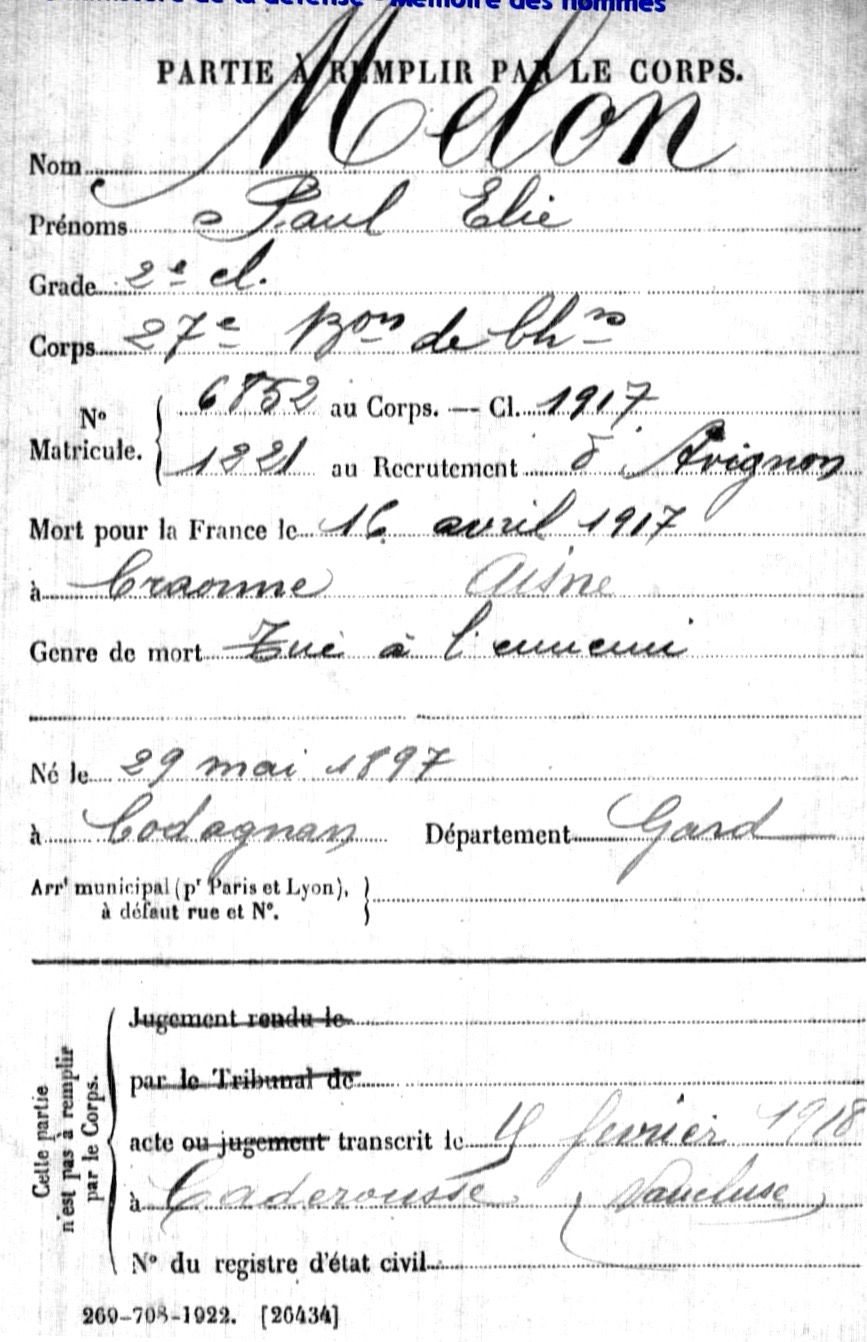 Ministère de la défense - Mémoire des hommes
PARTIE À REMPLIR PAR LE CORPS.
Nom Melon
Prénoms Paul Elie
Grade 2e cl.
Corps 27e Bon de Chrs
No Matricule. { 6852 au Corps. — Cl. 1917
1221 au Recrutement d'Avignon
Mort pour la France le 16 avril 1917
à Craonne Aisne
Genre de mort Tué à l'ennemi
Né le 29 mai 1897
à Codognan Département Gard
Arrt municipal (pr Paris et Lyon),
à défaut rue et No.
Cette partie n'est pas à remplir par le Corps.
Jugement rendu le
par le Tribunal de
acte ou jugement transcrit le 4 fevrier 1918
à Caderousse (Vaucluse)
No du registre d'état civil
260-708-1922. [26434]